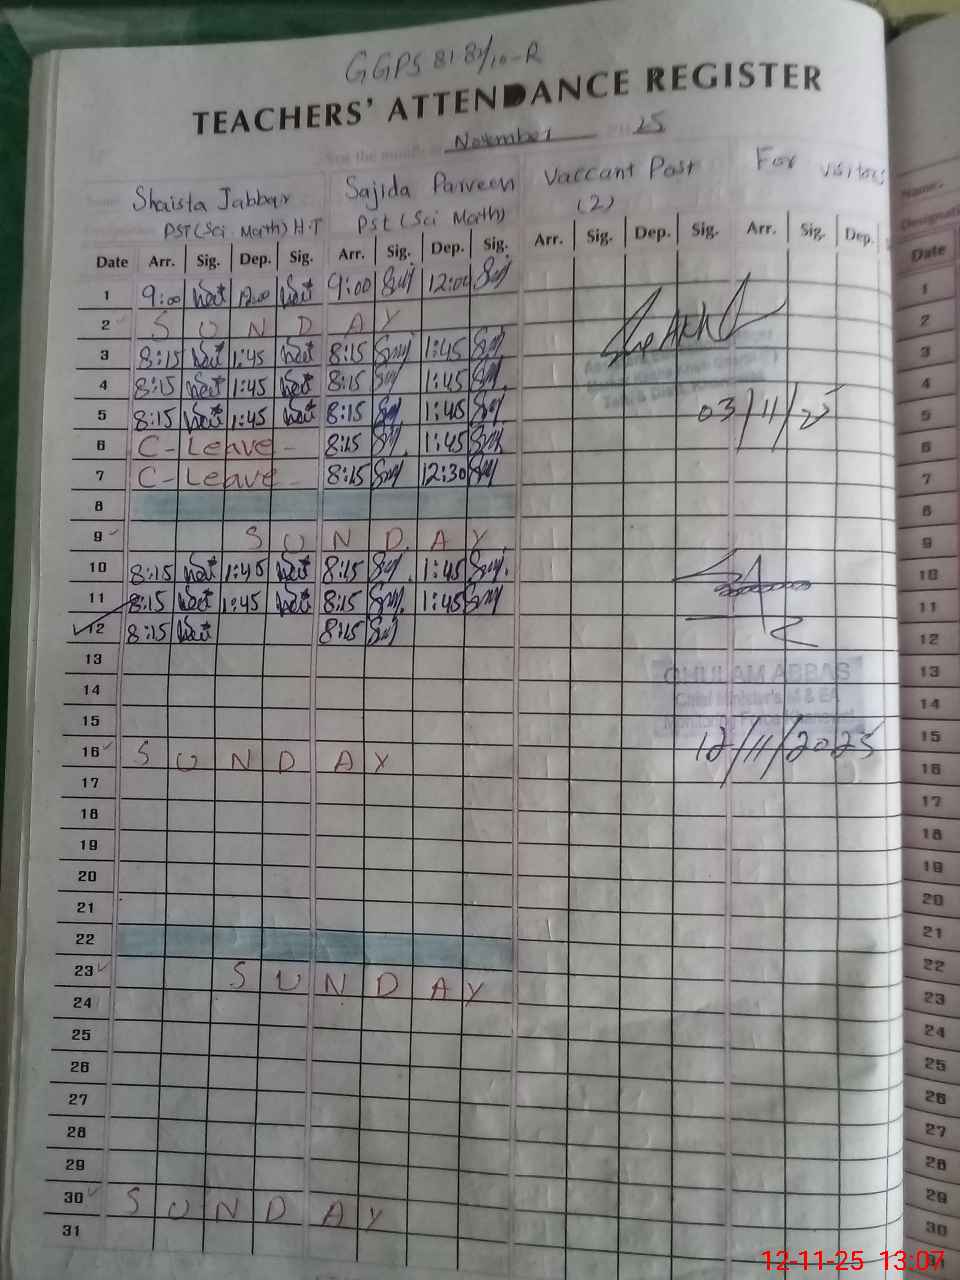 GGPS 81 81/10-R
TEACHERS' ATTENDANCE REGISTER
November 25
Shaista Jabbar Sajida Parveen Vaccant Post For visitors
PST (Sci Math) H.T Pst (Sci Math) (2)
Date Arr. Sig. Dep. Sig. Arr. Sig. Dep. Sig. Arr. Sig. Dep. Sig. Arr. Sig. Dep.
1 9:00 12:00 9:00 12:00
2 S U N D A Y
3 8:15 1:45 8:15 1:45
4 8:15 1:45 8:15 1:45
5 8:15 1:45 8:15 1:45 03/11/25
6 C-Leave - 8:15 1:45
7 C-Leave - 8:15 12:30
8
9 S U N D A Y
10 8:15 1:45 8:15 1:45
11 8:15 1:45 8:15 1:45
12 8:15 8:15
13 GHULAM ABBAS
14 Chief Minister's M & EA
15
16 S U N D A Y 12/11/2025
17
18
19
20
21
22
23 S U N D A Y
24
25
26
27
28
29
30 S U N D A Y
31
Name:
Date
1
2
3
4
5
6
7
8
9
10
11
12
13
14
15
16
17
18
19
20
21
22
23
24
25
26
27
28
29
30
12-11-25 13:07